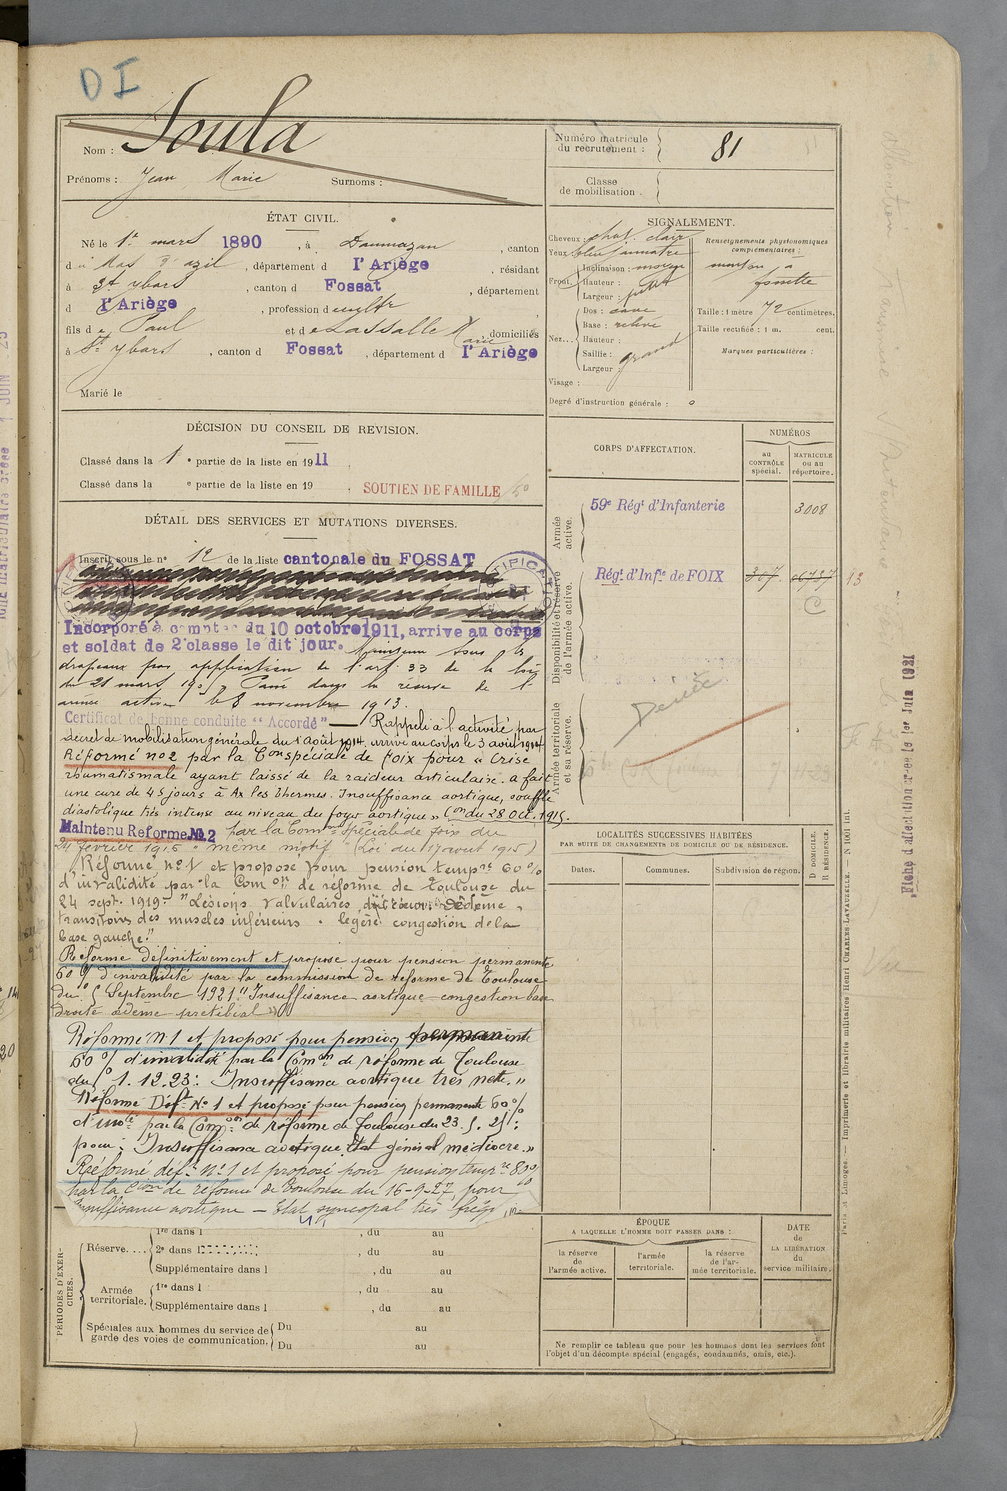 DI
Nom : Soula
Prénoms : Jean Marie Surnoms :
Numéro matricule du recrutement : 81
Classe de mobilisation :
ÉTAT CIVIL.
Né le 1er mars 1890, à Daumazan, canton
d u Mas d'azil, département d l'Ariège, résidant
à St ybars, canton d Fossat, département
d l'Ariège, profession d cultr
fils d e Paul et d e Lassalle Marie domiciliés
à St ybars, canton d Fossat, département d l'Ariège
Marié le
SIGNALEMENT.
Cheveux : chat. clair
Yeux bleu jaunatre
Front. Inclinaison : moyen
Hauteur :
Largeur : petit
Nez... Dos : cave
Base : relevé
Hauteur :
Saillie :
Largeur : grand
Visage :
Degré d'instruction générale : 0
Renseignements physionomiques complémentaires :
menton à
fossette
Taille : 1 mètre 72 centimètres.
Taille rectifiée : 1 m. cent.
Marques particulières :
DÉCISION DU CONSEIL DE REVISION.
Classé dans la 1e partie de la liste en 1911
Classé dans la e partie de la liste en 19 .
SOUTIEN DE FAMILLE
DÉTAIL DES SERVICES ET MUTATIONS DIVERSES.
Inscrit sous le n° 12 de la liste cantonale du FOSSAT
Incorporé à compter du 10 octobre 1911, arrive au corps
et soldat de 2e classe le dit jour. Maintenu sous les
drapeaux par application de l'art. 33 de la loi
du 21 mars 1905. Passé dans la réserve de l'
armée active le 8 novembre 1913.
Certificat de bonne conduite "Accordé" — Rappelé à l'activité par
décret de mobilisation générale du 1er Août 1914, arrivé au corps le 3 août 1914
Réformé n°2 par la Con spéciale de Foix pour « Crise
rhumatismale ayant laissé de la raideur articulaire. a fait
une cure de 45 jours à Ax les Thermes. Insuffisance aortique, souffle
diastolique très intense au niveau du foyer aortique » Con du 28 Oct. 1915.
Maintenu Réformé N° 2 par la Comon Spéciale de foix du
24 février 1916 même motif (Loi du 17 aout 1915)
Réformé n° 1 et proposé pour pension tempre 60 %
d'invalidité par la Comon de réforme de Toulouse du
24 sept. 1919 "Lésions valvulaires
des muscles inférieurs légère congestion de la
base gauche."
Réformé définitivement et proposé pour pension permanente
60 % d'invalidité par la commission de réforme de Toulouse
du 5 Septembre 1921 "Insuffisance aortique congestion base
droite œdème prétibial"
Réformé n° 1 et proposé pour pension permanente
60 % d'invalidité par la Comon de réforme de Toulouse
du 1.12.23 : Insuffisance aortique très nette. »
Réformé Deft N° 1 et proposé pour pension permanente 60 %
d'invté par la Comon de réforme de Toulouse du 23.5.25 :
pour : Insuffisance aortique. Etat général médiocre. »
Réformé déft n° 1 et proposé pour pension tempre 80 %
par la Con de réforme de Toulouse du 16-9-27 pour
Insuffisance aortique — Etat syncopal très
CORPS D'AFFECTATION.
NUMÉROS
AU CONTRÔLE spécial.
MATRICULE OU AU répertoire.
Armée active.
59e Régt d'Infanterie 3008
Disponibilité et réserve de l'armée active.
Régt d'Infie de FOIX 307 13
Armée territoriale et sa réserve.
LOCALITÉS SUCCESSIVES HABITÉES
PAR SUITE DE CHANGEMENTS DE DOMICILE OU DE RÉSIDENCE.
Dates. Communes. Subdivision de région.
D DOMICILE.
R RÉSIDENCE.
PÉRIODES D'EXERCICES.
Réserve.... 1re dans l , du au
2e dans l , du au
Supplémentaire dans l , du au
Armée territoriale. 1re dans l , du au
Supplémentaire dans l , du au
Spéciales aux hommes du service de garde des voies de communication. Du au
Du au
ÉPOQUE
A LAQUELLE L'HOMME DOIT PASSER DANS :
la réserve de l'armée active.
l'armée territoriale.
la réserve de l'armée territoriale.
DATE de LA LIBÉRATION du service militaire.
Ne remplir ce tableau que pour les hommes dont les services font
l'objet d'un décompte spécial (engagés, condamnés, omis, etc.).
Paris et Limoges. — Imprimerie et librairie militaires Henri CHARLES-LAVAUZELLE.
Fiche d'affectation créée le 1er Juin 1921